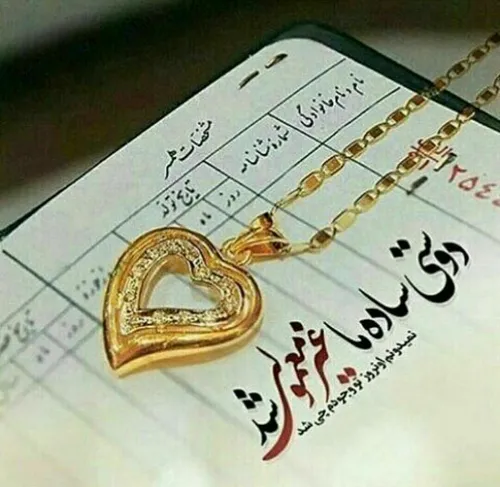 مشخصات همسر
نام و نام خانوادگی
شماره شناسنامه
تاریخ تولد
روز
ماه
دوستی ساده ما غیر معمولی شد
نمیدونم اونروز تو وجودم چی شد